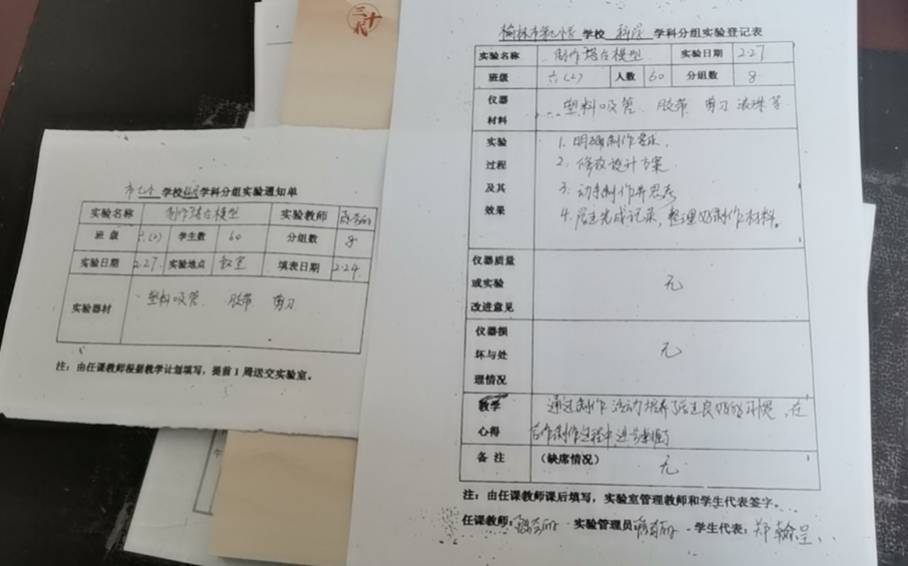 三十
学校 科学 学科分组实验登记表
实验名称 制作塔台模型 实验日期 2.27
班级 六(2) 人数 60 分组数 8
仪器材料 塑料吸管 胶带 剪刀 滚珠等
实验过程及其效果
1. 明确制作要求.
2. 修改设计方案
3. 动手制作并思考
4. 完成记录,整理好制作材料。
仪器质量或实验改进意见 无
仪器损坏与处理情况 无
教学心得 通过制作活动培养了 良好的习惯,在
合作制作过程中进步
备注 (缺席情况) 无
注:由任课教师课后填写,实验室管理教师和学生代表签字。
任课教师: 实验管理员: 学生代表:郑翰
学校 学科分组实验通知单
实验名称 制作塔台模型 实验教师
班级 六(2) 学生数 60 分组数 8
实验日期 2.27. 实验地点 教室 填表日期 2.24.
实验器材 塑料吸管 胶带 剪刀
注:由任课教师根据教学计划填写,提前1周送交实验室。